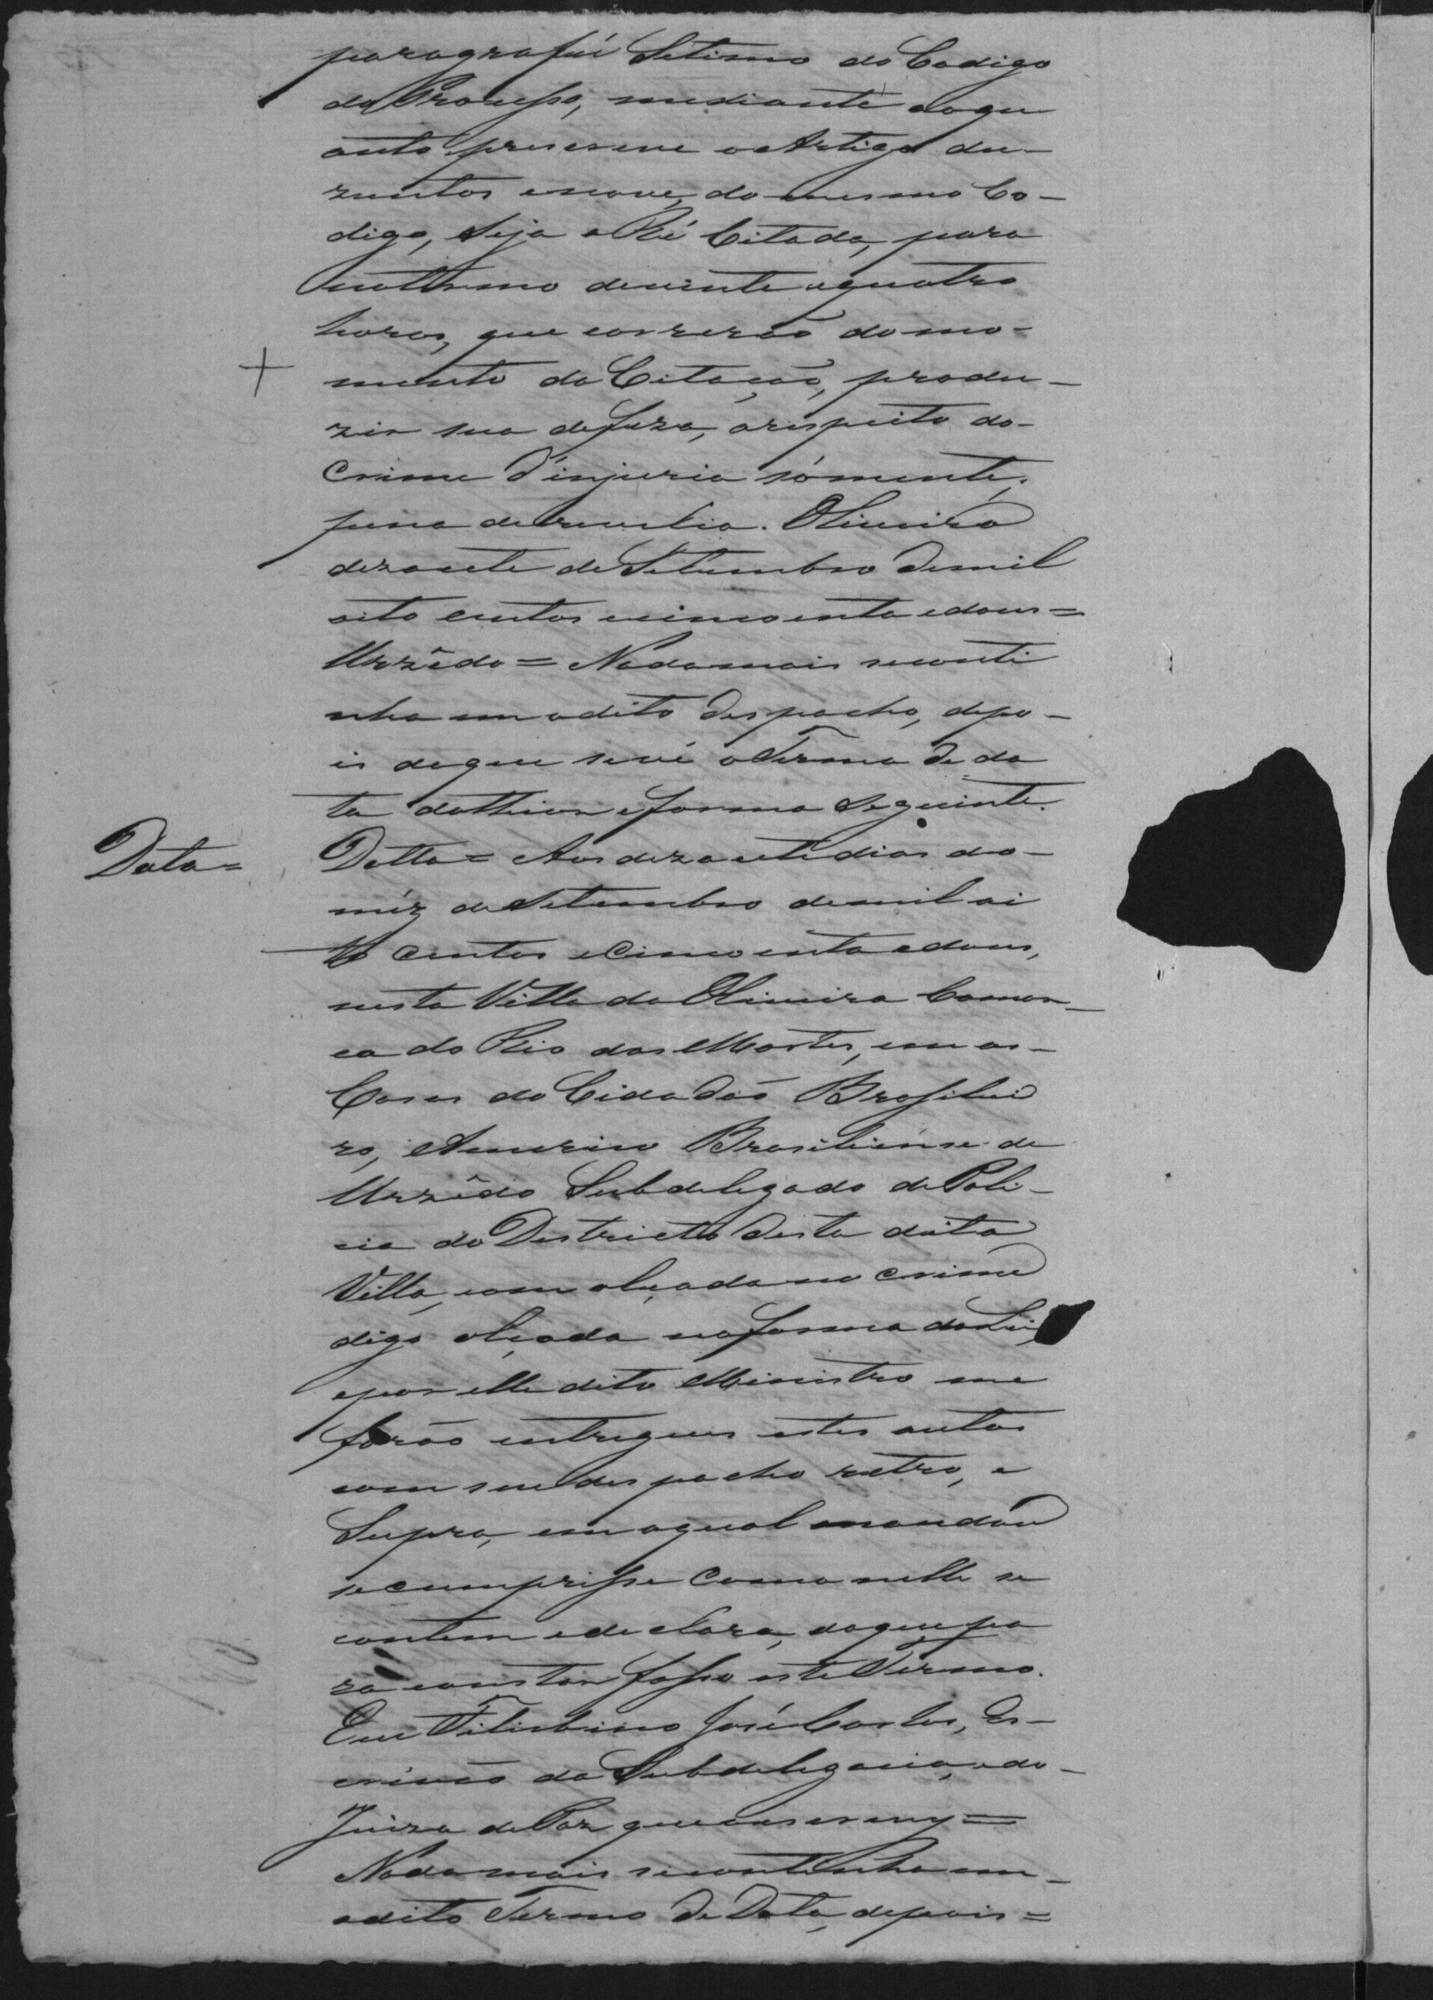 paragrafui Setimo do Codigo
do Processo, mediante aoqu
anto prescreve o Artigo du-
zentos e nove, do mesmo Co-
digo, Seja a Ré Citada, para
no termo de vinte e quatro
horas, que correrão do mo-
mento da Citação, produ-
zir sua defeza, arespeito do-
crime d'injuria sómente,
pena de revelia. Oliveira
dezasete de Setembro de mil
oito centos e cincoenta e dous =
Urzêdo = Nada mais se conti
nha em o dito despacho, depo-
is do que se vê o Termo de da
ta do theor e forma Seguinte.
Data=
Datta = Aos dezasete dias do-
mêz de Setembro de mil oi
to centos e Cincoenta e dous,
nesta Villa da Oliveira Comar-
ca do Rio das Mortes, em as-
Casas do Cidadão Brasilei
ro, Americo Brasiliense de
Urzêdo Subdelegado de Poli-
cia do Districto desta dita
Villa, com alçada no crime
digo alçada na forma da Lei
e por elle dito Ministro me
forão entregues estes autos
com seu despacho retro, e
Supra, em o qual mandou
se cumprisse como nelle se
contem e declara, do que pa
ra constar fasso este Termo.
Eu Felisbino José Carlos, Es-
crivão da Subdelegacia, e do-
Juizo de Paz que o escrevy =
Nada mais se continha em-
o dito Termo de Data, depois =